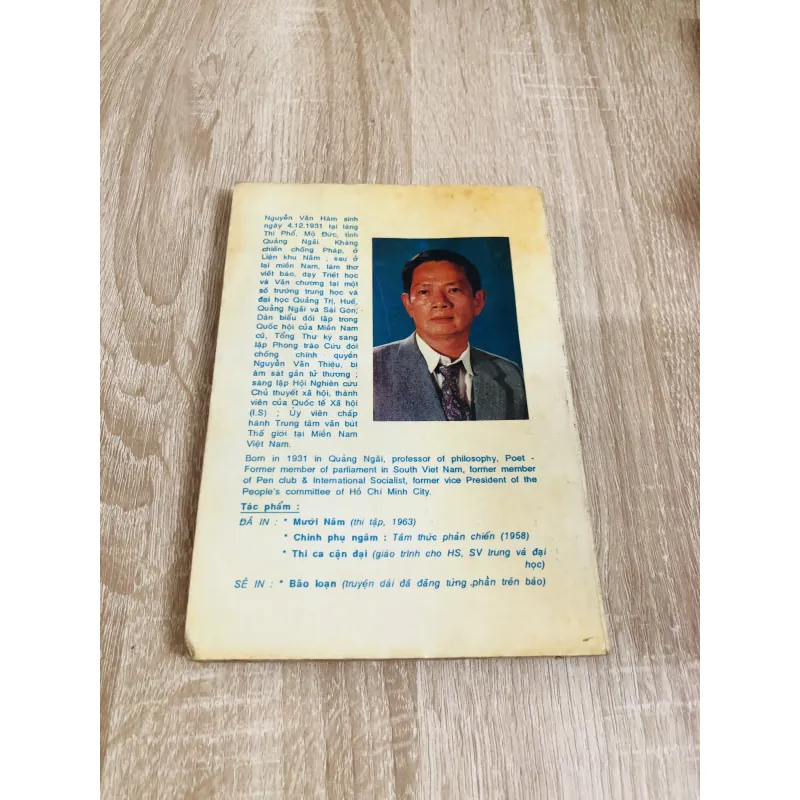 Nguyễn Văn Hàm sinh
ngày 4.12.1931 tại làng
Thi Phổ, Mộ Đức, tỉnh
Quảng Ngãi. Kháng
chiến chống Pháp, ở
Liên khu Năm ; sau ở
lại miền Nam, làm thơ
viết báo, dạy Triết học
và Văn chương tại một
số trường trung học và
đại học Quảng Trị, Huế,
Quảng Ngãi và Sài Gòn;
Dân biểu đối lập trong
Quốc hội của Miền Nam
cũ, Tổng Thư ký sáng
lập Phong trào Cứu đói
chống chính quyền
Nguyễn Văn Thiệu, bị
ám sát gần tử thương ;
sáng lập Hội Nghiên cứu
Chủ thuyết xã hội, thành
viên của Quốc tế Xã hội
(I.S) ; Ủy viên chấp
hành Trung tâm văn bút
Thế giới tại Miền Nam
Việt Nam.
Born in 1931 in Quảng Ngãi, professor of philosophy, Poet -
Former member of parliament in South Viet Nam, former member
of Pen club & International Socialist, former vice President of the
People's committee of Hồ Chí Minh City.
Tác phẩm :
ĐÃ IN : * Mười Năm (thi tập, 1963)
* Chinh phụ ngâm : Tâm thức phản chiến (1958)
* Thi ca cận đại (giáo trình cho HS, SV trung và đại
học)
SẼ IN : * Bão loạn (truyện dài đã đăng từng phần trên báo)